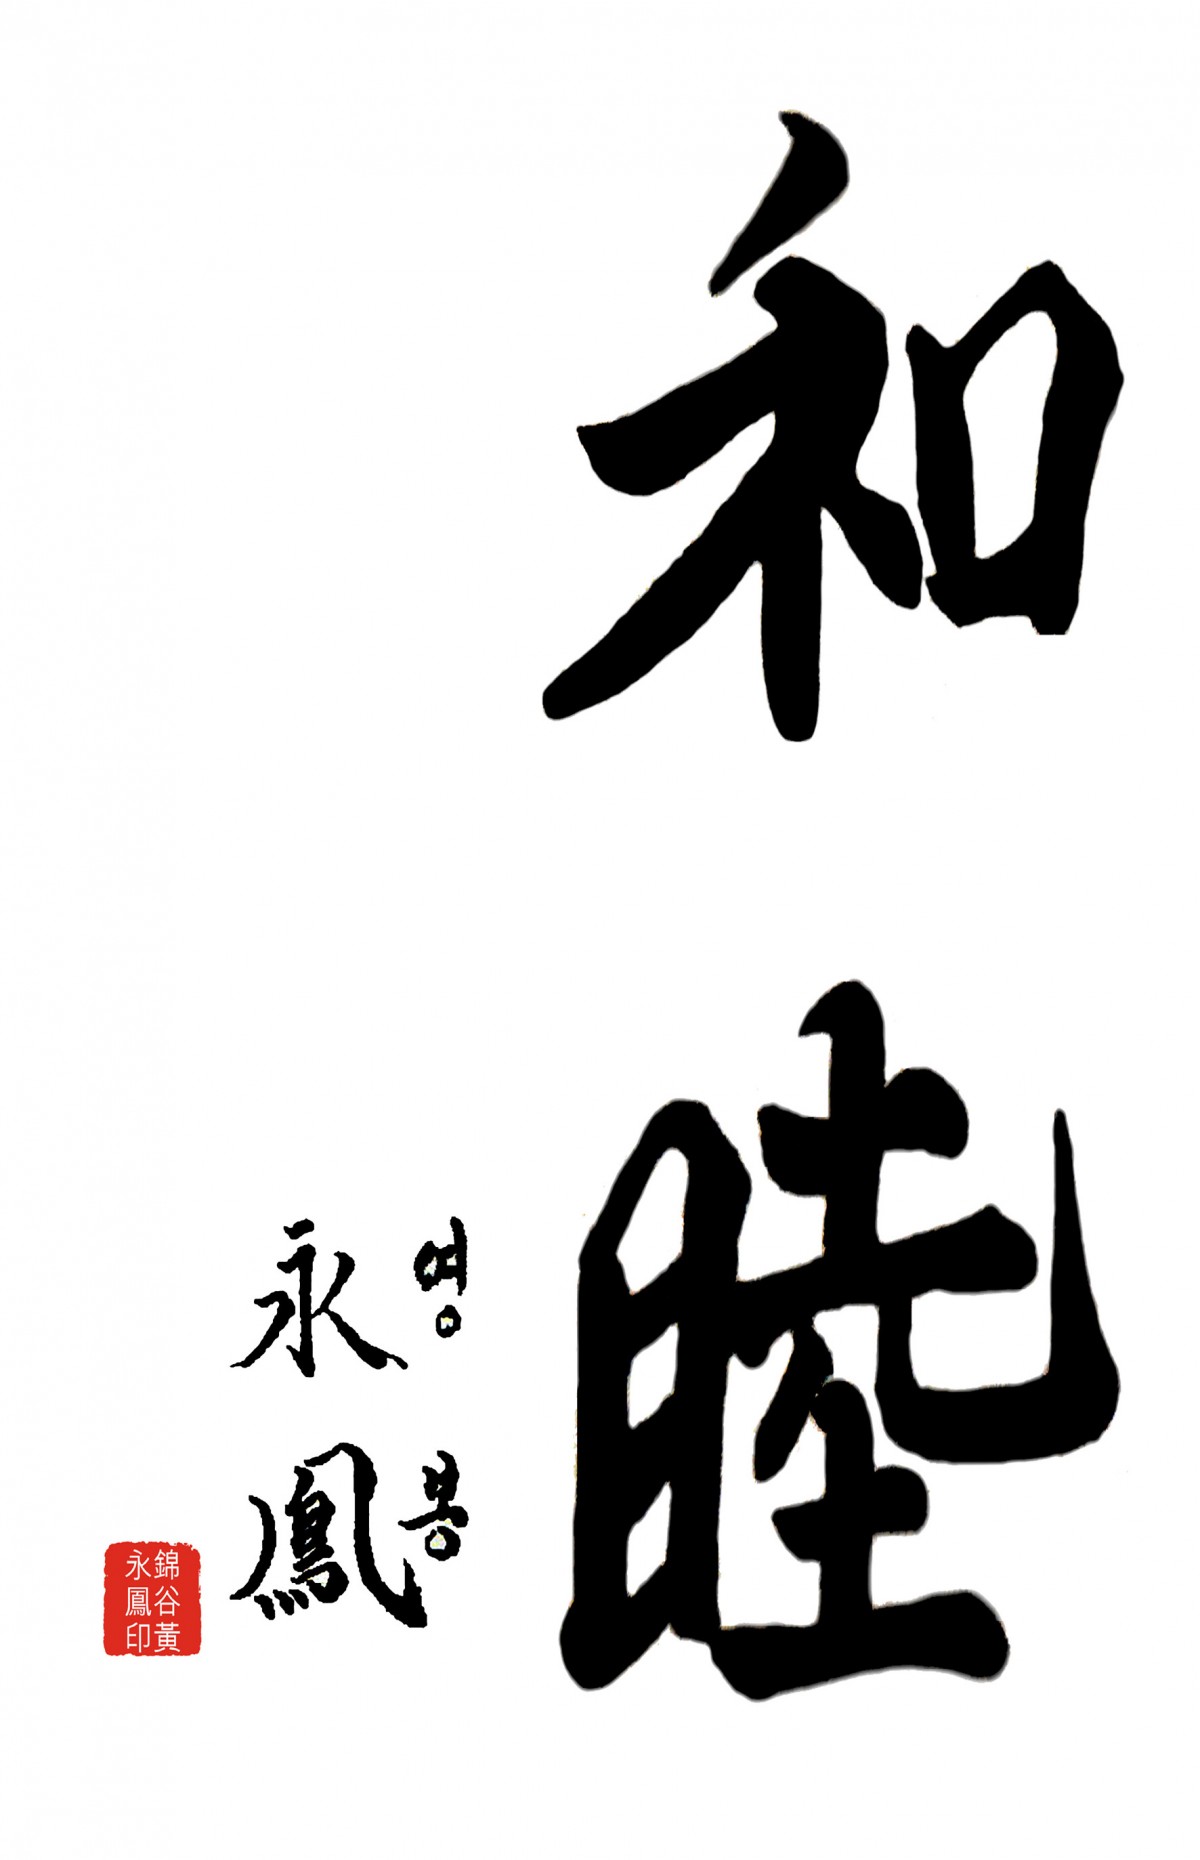 和睦
영봉
永鳳
錦谷黃
永鳳印